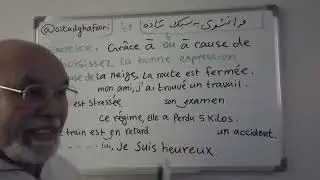 @ostadghafoori با فرانسوی به سبک ساده
Exercice. Grâce à ou à cause de
choisissez la bonne expression
use de la neige, la route est fermée.
mon ami, j'ai trouvé un travail.
est stressée son examen
ce régime, elle a Perdu 5 Kilos.
e train est en retard un accident.
lui, Je Suis heureux